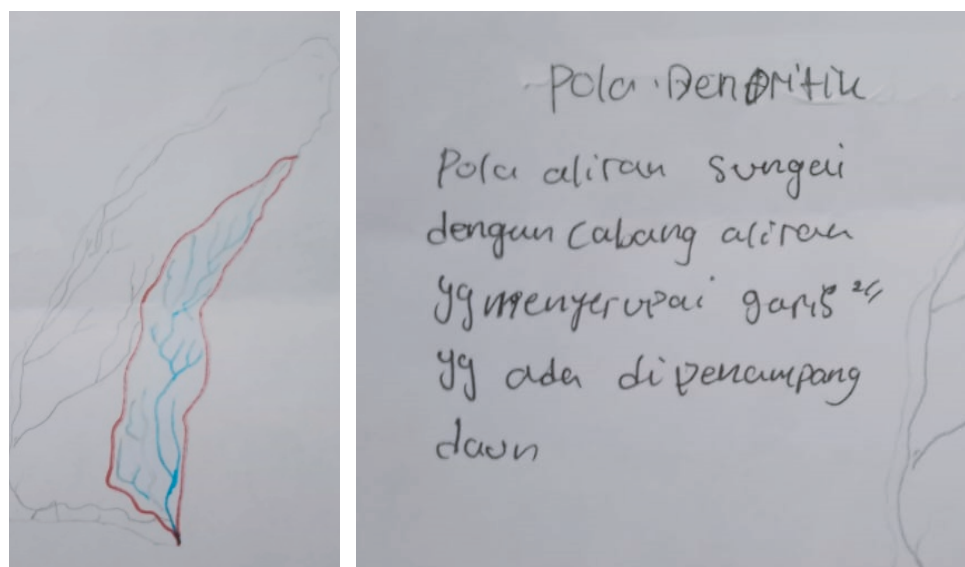 Pola Dendritik
Pola aliran sungai
dengan cabang aliran
yg menyerupai garis"
yg ada dipenampang
daun